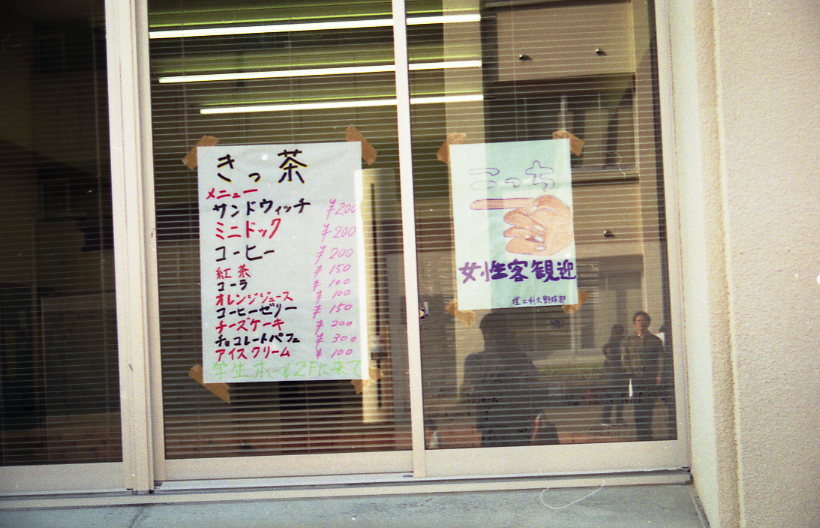 きっ茶
メニュー
サンドウィッチ ¥200
ミニドック ¥200
コーヒー ¥200
紅茶 ¥150
コーラ ¥100
オレンジジュース ¥100
コーヒーゼリー ¥150
チーズケーキ ¥200
チョコレートパフェ ¥300
アイスクリーム ¥100
学生ホール2Fに来て
こっち
女性客観迎
理工科大野球部